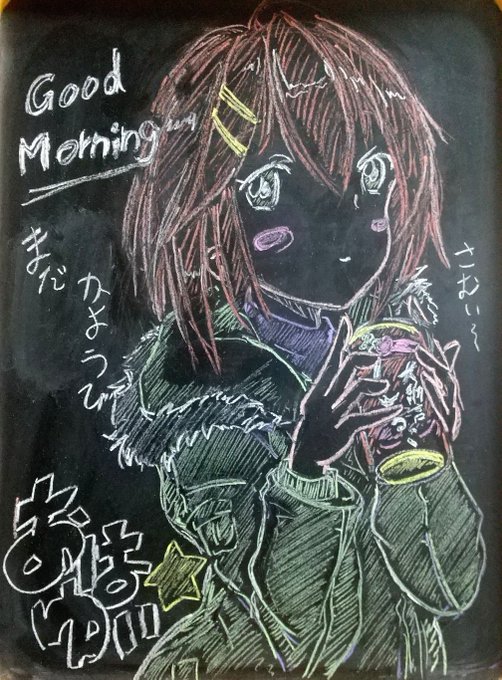 Good
Morning
まだ
かようび
さむい〜
おは
ゆ